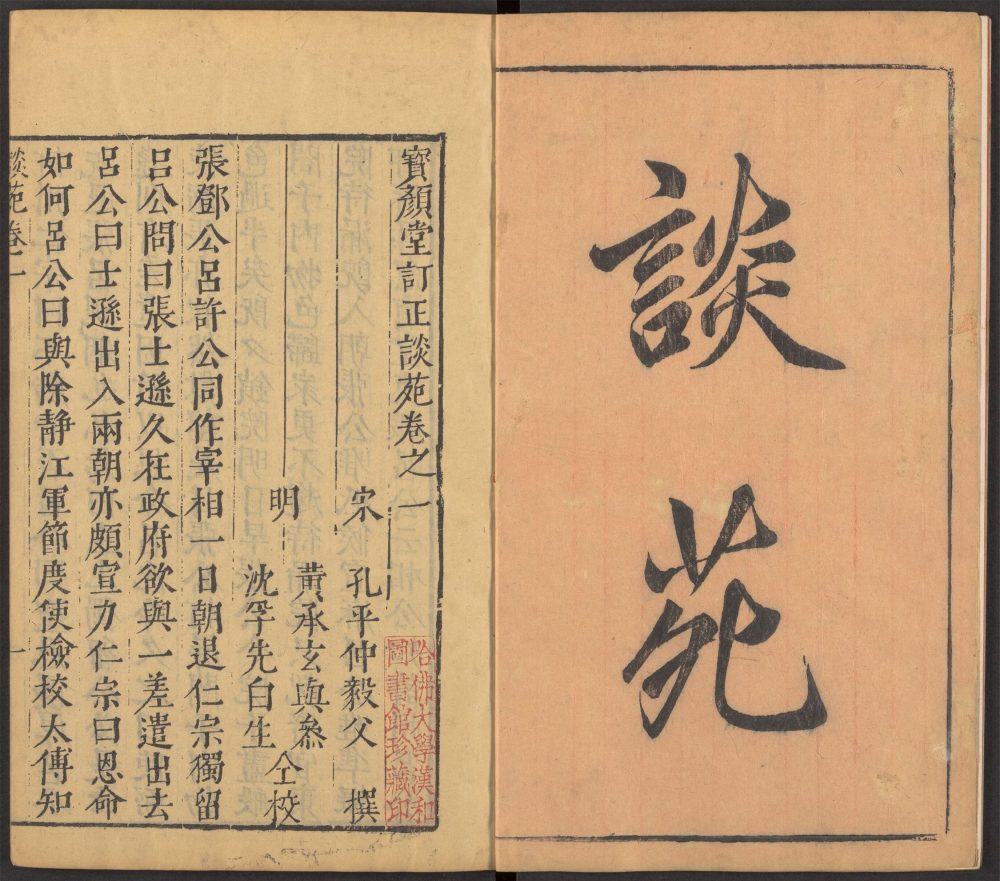 談苑
寶顏堂訂正談苑卷之一
宋 孔平仲毅父 撰
明 黃承玄與參
沈孚先白生 仝校
張鄧公呂許公同作宰相一日朝退仁宗獨留
呂公問曰張士遜久在政府欲與一差遣出去
呂公曰士遜出入兩朝亦頗宣力仁宗曰恩命
如何呂公曰與除静江軍節度使檢校太傅知
談苑卷一
一
哈佛大學漢和
圖書館珍藏印